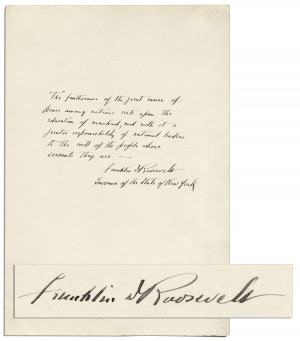 The furtherance of the great cause of
Peace among nations rests upon the
education of mankind, and with it a
greater responsibility of national leaders
to the will of the people whose
servants they are —
Franklin D Roosevelt
Governor of the State of New York
Franklin D Roosevelt